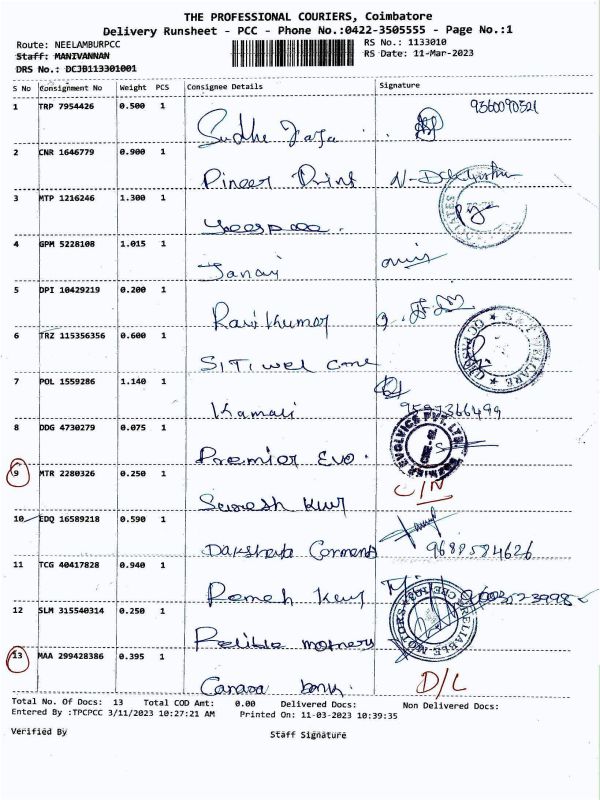 THE PROFESSIONAL COURIERS, Coimbatore
Delivery Runsheet - PCC - Phone No.:0422-3505555 - Page No.:1
Route: NEELAMBURPCC RS No.: 1133010
Staff: MANIVANNAN RS Date: 11-Mar-2023
DRS No.: DCJB113301001
S No Consignment No Weight PCS Consignee Details Signature
1 TRP 7954426 0.500 1 9360090521
Sudha
2 CNR 1646779 0.900 1
Pineer Prins
3 MTP 1216246 1.300 1
4 GPM 5228108 1.015 1
Janavi
5 DPI 10429219 0.200 1
Ravi Kumar
6 TRZ 115356356 0.600 1
SITI wel care
7 POL 1559286 1.140 1
Kamali 9597366499
8 DDG 4730279 0.075 1
Premier Evo.
9 MTR 2280326 0.250 1 C/N
Suresh Kuy
10 EDQ 16589218 0.590 1
Dakshata Garments 9688584626
11 TCG 40417828 0.940 1
12 SLM 315540314 0.250 1
RELIABLE MOTORS
13 MAA 299428386 0.395 1
Canara bank. D/L
Total No. Of Docs: 13 Total COD Amt: 0.00 Delivered Docs: Non Delivered Docs:
Entered By :TPCPCC 3/11/2023 10:27:21 AM Printed On: 11-03-2023 10:39:35
Verified By Staff Signature